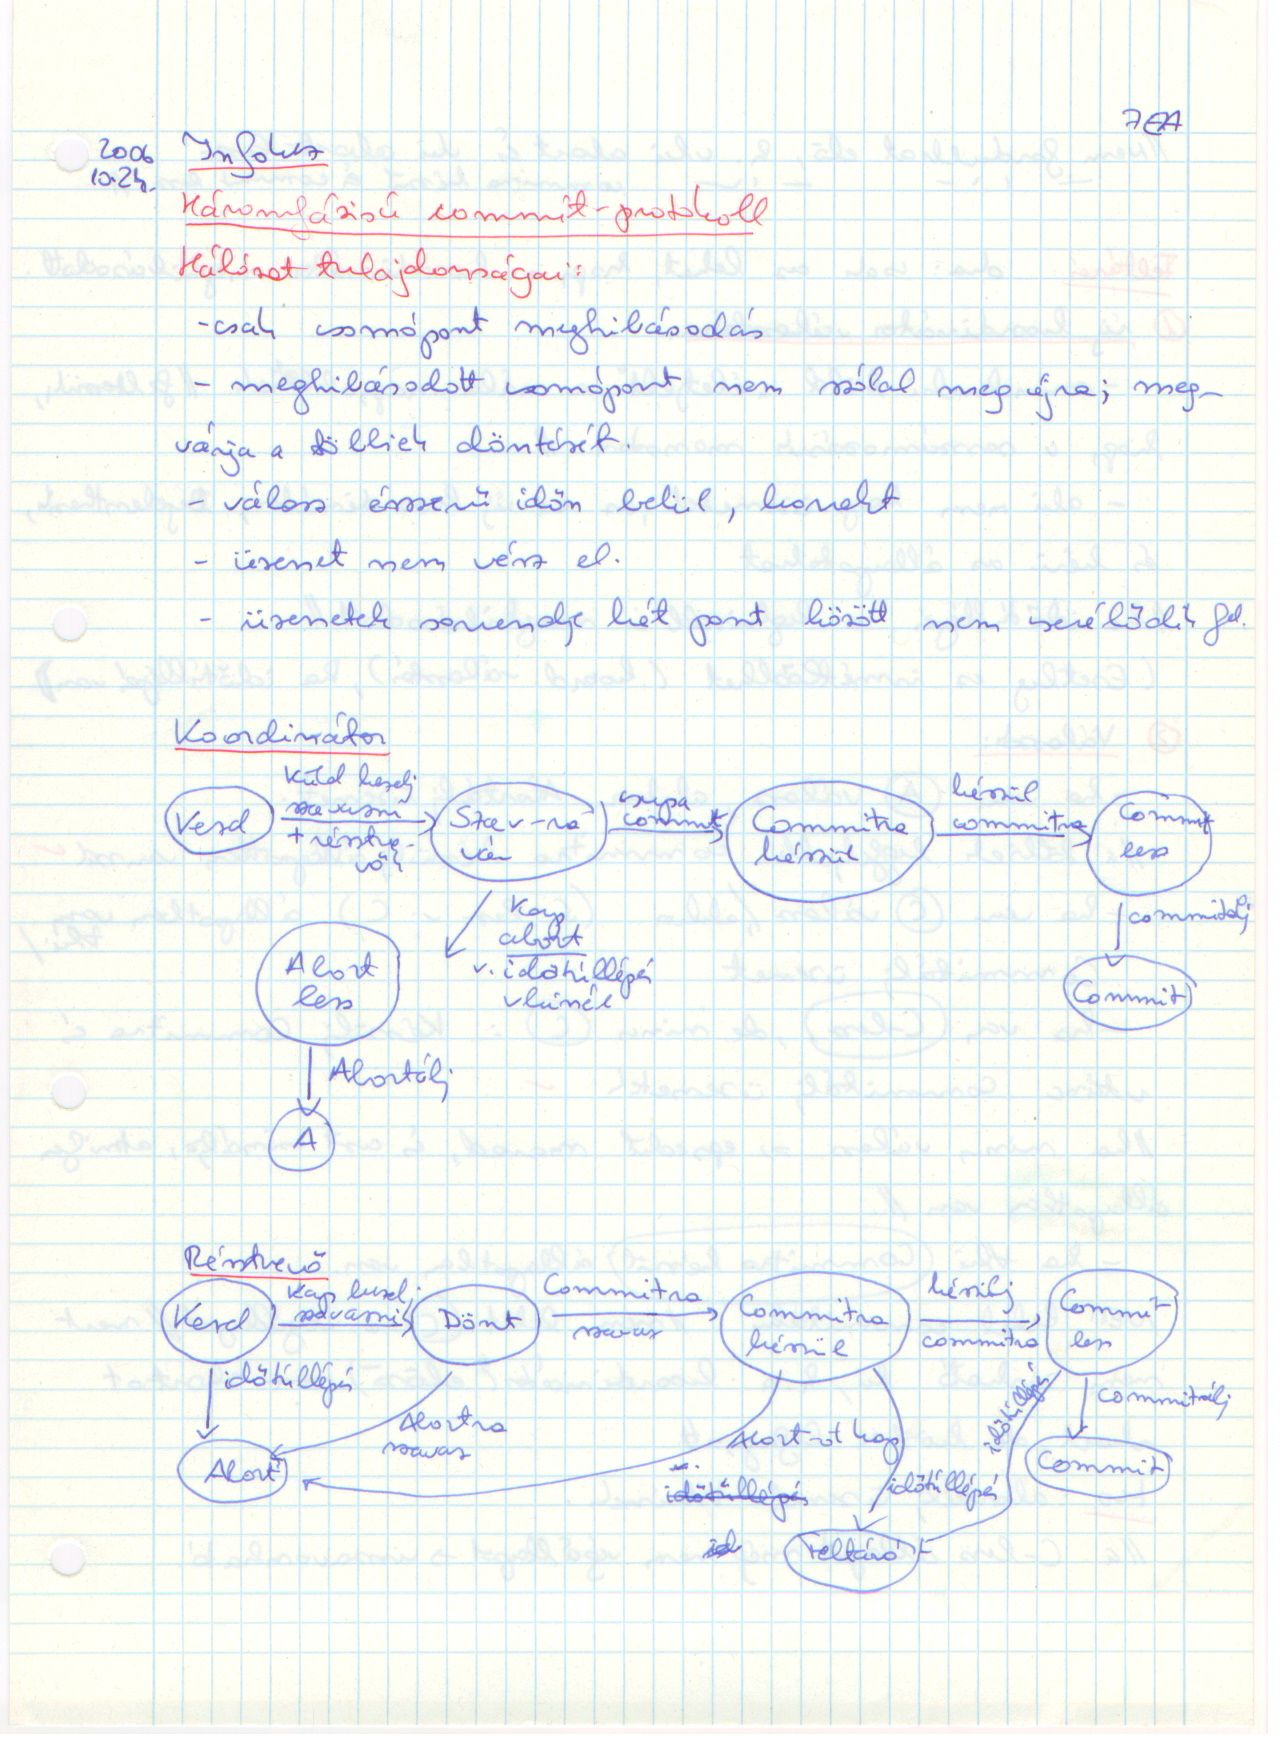 7EA
2006
10.24.
Infoker
Háromfázisú commit-protokoll
Hálózat tulajdonságai:
- csak csomópont meghibásodás
- meghibásodott csomópont nem szólal meg újra; meg-
várja a többiek döntését.
- válasz ésszerű időn belül, korrekt
- üzenet nem vész el.
- üzenetek sorrendje két pont között nem cserélődik fel.
Koordinátor
Kezd
Küld kezdj
szavazni
+ résztve-
vők
Szav-ra
vár
csupa
commit
Commitra
készül
készül
commitra
Commit
lesz
commitálj
Commit
Kap
abort
v. időtúllépés
vkinél
Abort
lesz
Abortálj
A
Résztvevő
Kezd
Kap kezdj
szavazni
Dönt
Commitra
szavaz
Commitra
készül
készülj
commitra
Commit
lesz
időtúllépés
Abortra
szavaz
Abort-ot kap
v.
időtúllépés
időtúllépés
időtúllépés
commitálj
Abort
Commit
Feltáró